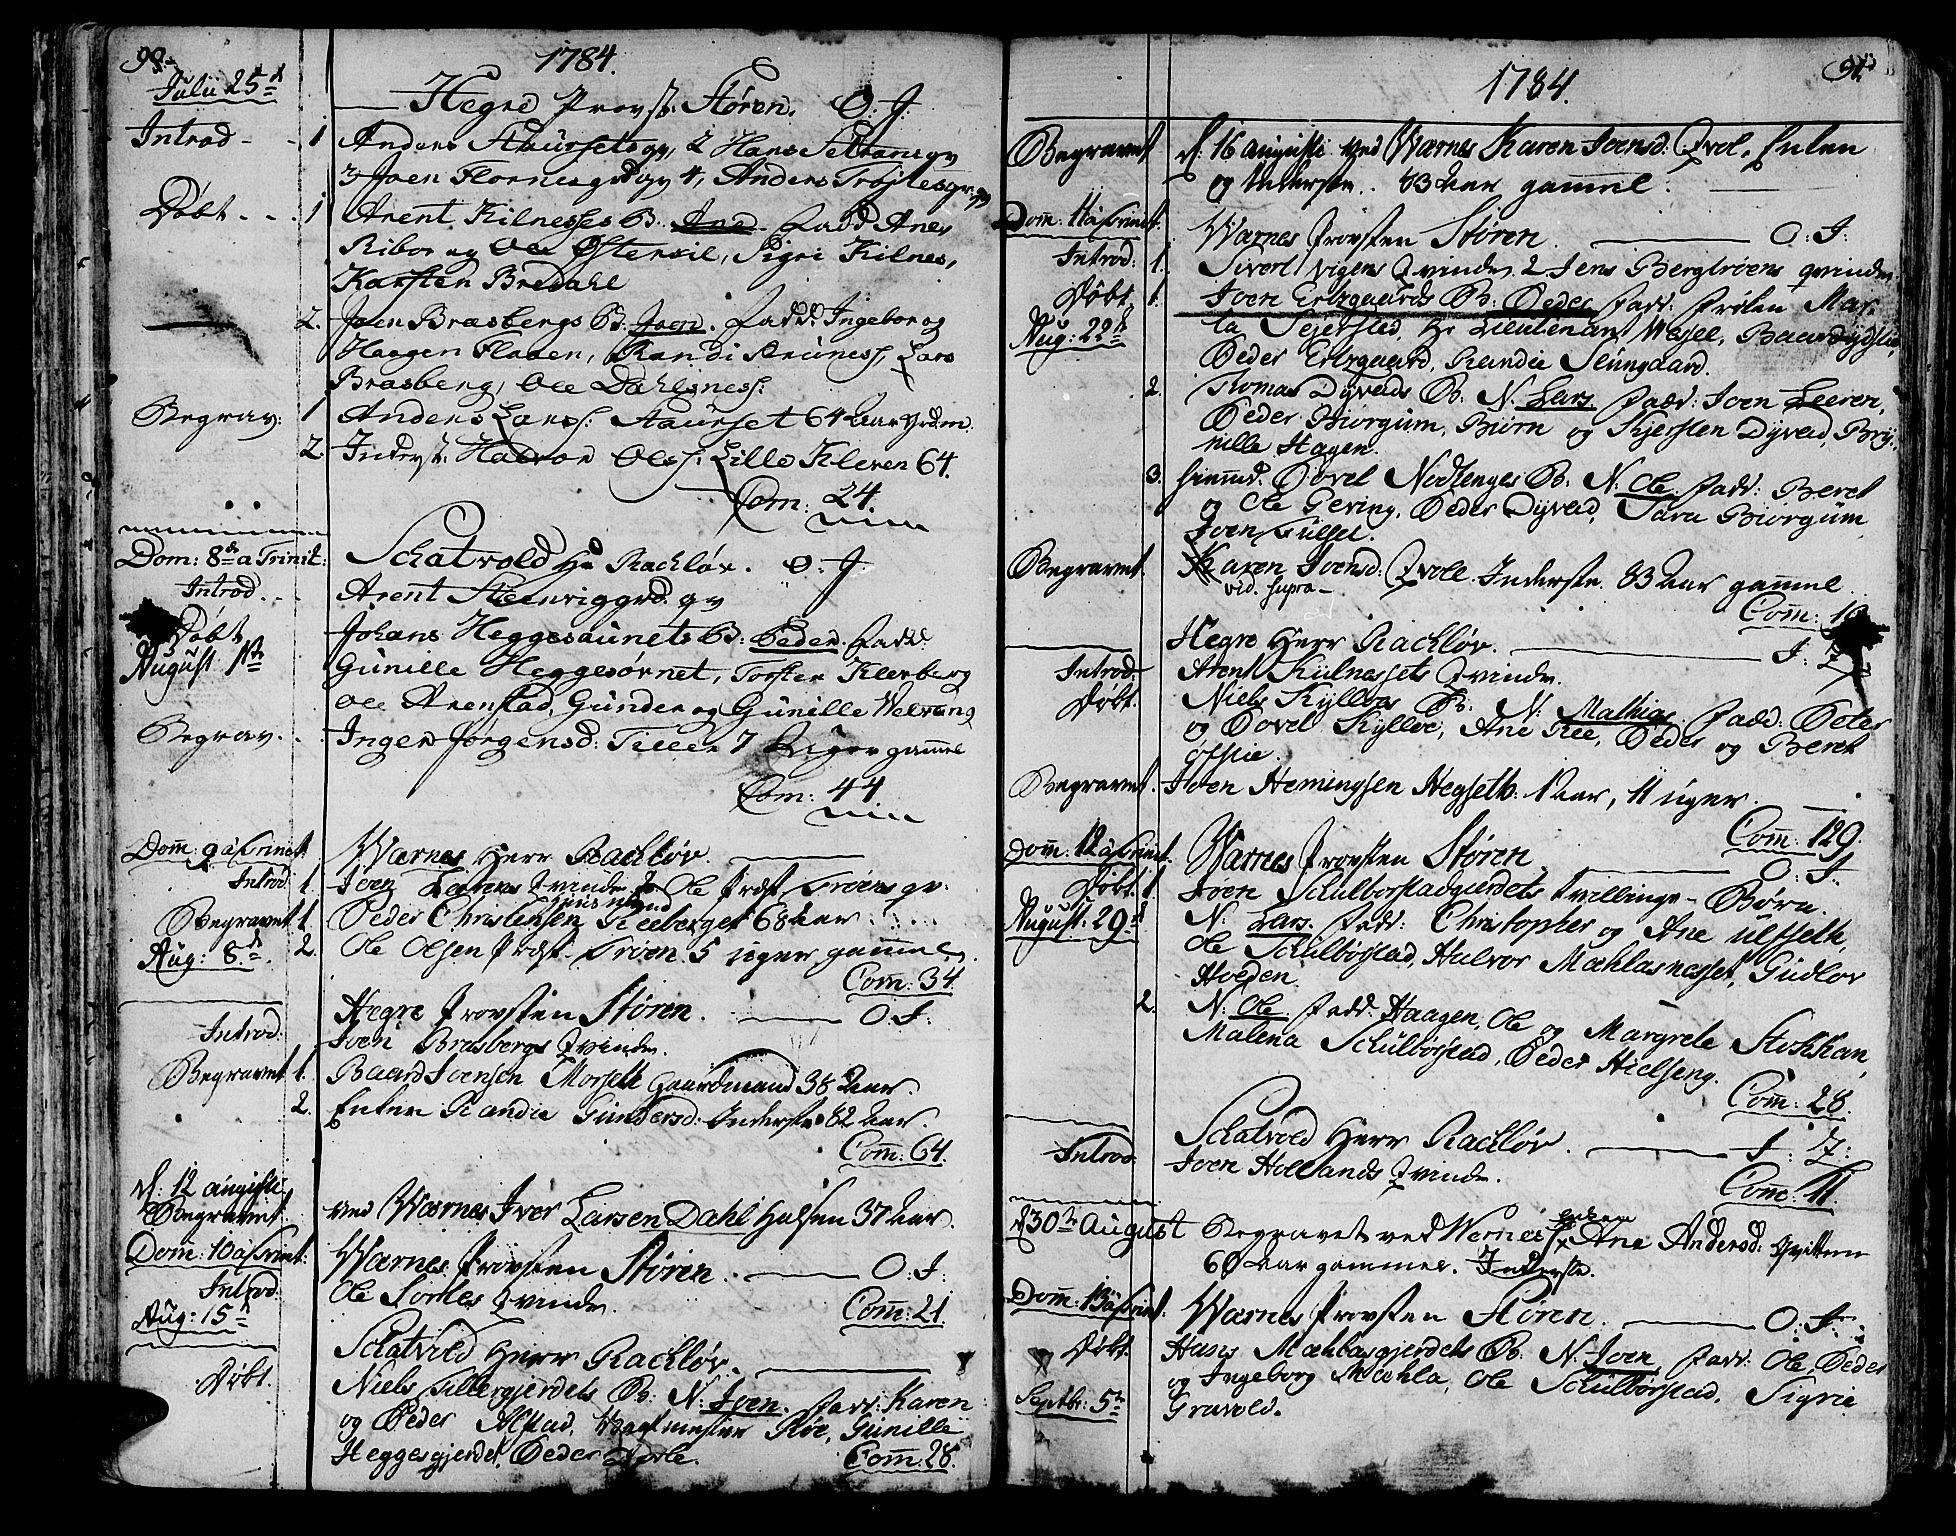 90.
1784.
Julii 25d
Hegre Provst: Støren. O. J.
Introd - - 1 Anders Aaursetsqv, 2 Hans Setransqv
3 Joen Flornesgrdqv 4, Anders Trøjtesgr:qv
Døbt - - 1 Arent Kilnesses B. Ane. Fadd Anes
Ribor og Ole Østervil, Sigri Kilnes,
Karsten Bredahl
2. Joen Bræsbergs B: Joen. Fadd: Ingebor og
Haagen Floren, Randi Aruness, Lars
Bræsberg, Ole Dahlsness:
Begrav: 1 Anders Larss: Aaurset 64 Aar
2. Inderst: Halvor Oless: Lille Kleven 64.
Com: 24.
Dom: 8de a Trinit: Schatvold Hr Rachløv. O. J
Introd. - - Arent Steenviggrd. qv
Døbt Johans Heggesaunets B: Peder. Fadd:
August 1ste Gunille Heggesørnet, Torsten Klerberg
Ole Arenstad, Gunder og Gunille Welvang
Begrav. - Inger Jørgensd: Tiller 7 Uger gamel
Com: 44.
Dom: 9 a Trinit. Wærnes Herr Rachløv.
Introd 1. Joen Leerens Qvinde 2 Ole Præst Trøens qv:
Begravet 1. Peder Christensen Tilleberget 68 Aar
Aug: 8d. 2. Ole Olsen Præst-Trøen 5 uger gammel.
Com: 34.
Hegre Provsten Støren. O. J:
Introd: Joen Bræsbergs Qvinde.
Begravet 1. Baard Joensen Morseth Gaardmand 38 Aar.
2. Enken Randie Gundersd: Inderste 82 Aar.
Com: 64.
d: 12 augusti
Begravet ved Wærnes Iver Larsen Dahl Halsen 37 Aar.
Dom: 10 a Trinit: Wærnes Provsten Støren. O: J:
Introd: Ole Sorles Qvinde. Com: 21.
Aug: 15d
Schatvold Herr Rachløv.
Døbt. Niels Tillergjerdets B: N: Joen. Fadd: Karen
og Peder Alstad, Vagtmester Røe, Gunille
Heggesgjerdet. Peder Aarle. Com: 28.
91.
1784.
Begravet d: 16 augusti ved Wærnes Karen Joensd: Qvol. Enken
og Inderste. 83 Aar gammel.
Dom: 11 a Trinit. Wærnes Provsten Støren. O: J:
Introd: 1. Sivert Vigens Qvinde. 2 Jens Bergtrøens qvinde
Døbt. 1. Joen Ertzgaards B: Peder Fadd: Frølen Mar-
Aug: 22d ta Sejersted, Hr Lieutenant Wessel, Baard Dydslie,
Peder Ertzgaard, Randie Slungaard.
2. Thomas Dyveds B: N. Lars. Fadd: Joen Leeren,
Peder Biørgum, Biørn og Kjersten Dyved, Bry-
nille Hagen.
3. hiemd. Povel Nedtenges B: N: Ole. Fadd: Beret
og Ole Gering, Peder Dyved, Sara Biørgum
Joen Fulset.
Begravet. Karen Joensd: Qvole Inderste. 83 Aar gamel.
vid. supra - Com: 1
Hegre Herr Rachløv. J: 7:
Introd: Arent Kulnessets Qvinde.
Døbt. Niels Kylloes B: N: Mathias. Fadd: Peter
og Povel Kylloe, Ane Ree, Peder og Beret
Offtie.
Begravet. Joen Hemingsen Hegseth: 1 Aar, 11 uger.
Com: 129.
Dom: 12 a Trinit. Wærnes Provsten Støren. O: J:
Døbt. 1 Joen Schulborstadgjerdets Tvillinge-Børn.
August: 29d N. Lars. Fadd: Christopher og Ane Ulseth,
Ole Schulborstad, Halvor Mæhlasnesset, Gudlov
Hoeden.
2. N: Ole. Fadd: Haagen, Ole og Margrete Stokkan,
Malena Schulborstad, Peder Hielseng.
Com: 28.
Schatvold Herr Rachløv. J: 7:
Introd Joen Hollands Qvinde. Com: 11.
d 30te August Begravet ved Wernes Enken Ane Andersd: Qvitten
60 Aar gammel. Inderste.
Dom: 13 a Trinit: Wærnes Provsten Støren. O: J:
Døbt. Hans Mæhlasgjerdets B: N. Joen. Fadd: Ole, Peder
og Ingeborg Mæhla, Ole Schulborstad. Sigrie
Septbr: 5te Gravold.